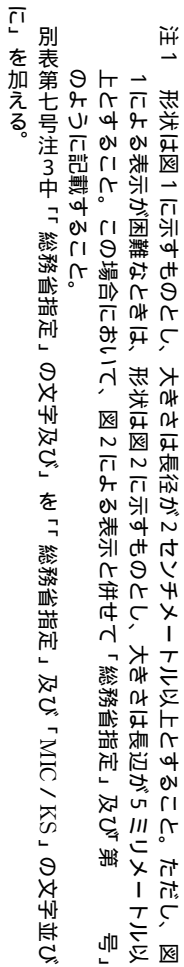 注１　形状は図１に示すものとし、大きさは長径が２センチメートル以上とすること。ただし、図
１による表示が困難なときは、形状は図２に示すものとし、大きさは長辺が５ミリメートル以
上とすること。この場合において、図２による表示と併せて「総務省指定」及び第　　号」
のように記載すること。
別表第七号注３中「「総務省指定」の文字及び」を「「総務省指定」及び「MIC／KS」の文字並び
に」を加える。